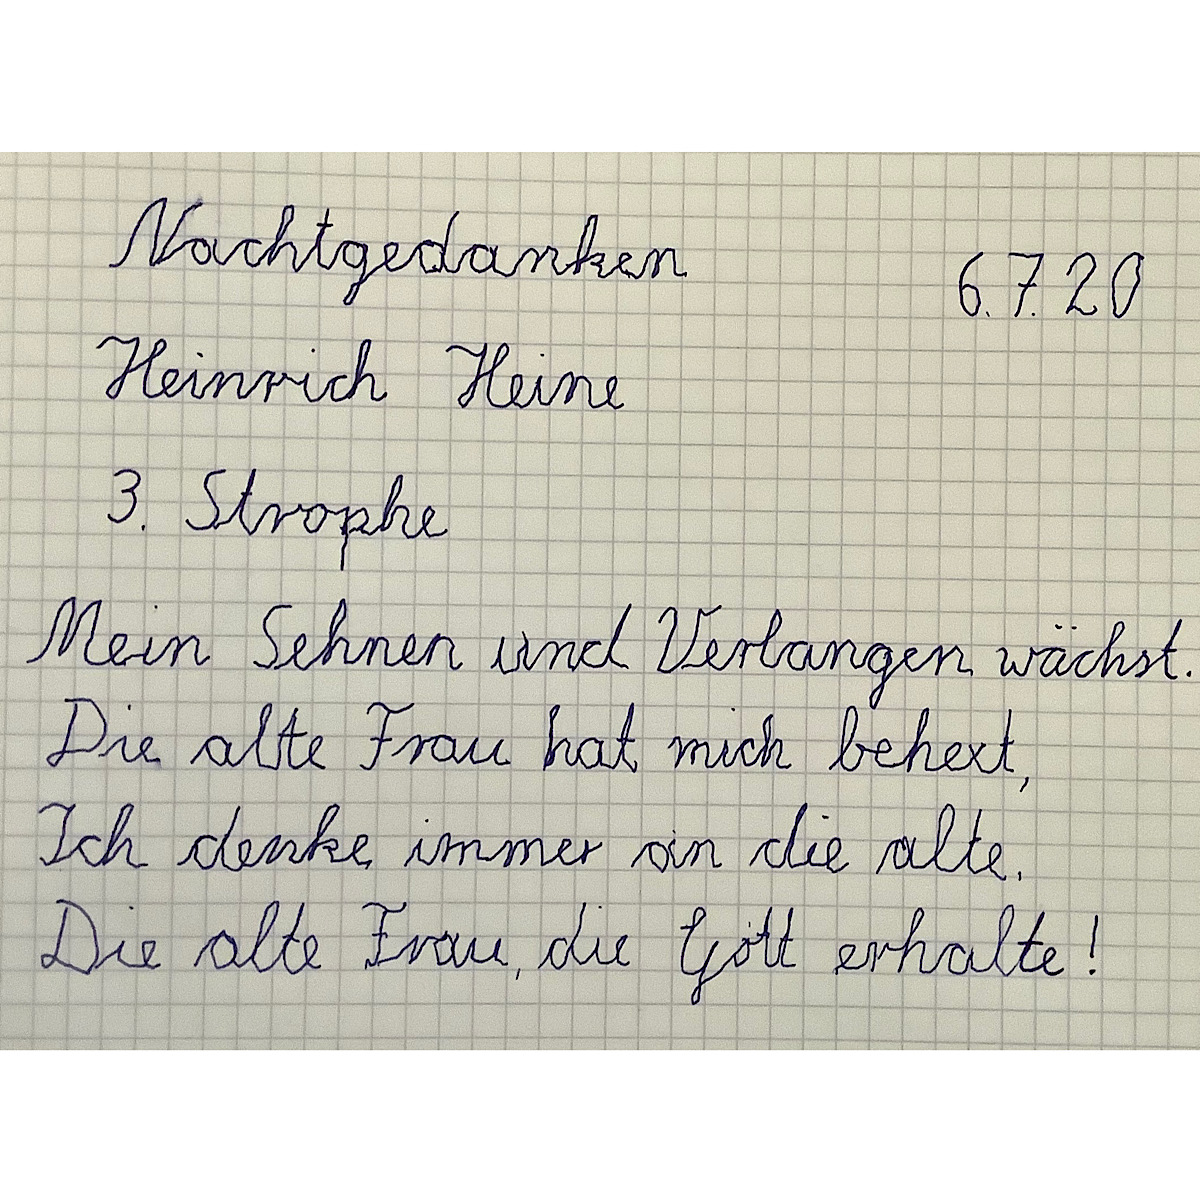 Nachtgedanken
6.7.20
Heinrich Heine
3. Strophe
Mein Sehnen und Verlangen wächst.
Die alte Frau hat mich behext,
Ich denke immer an die alte.
Die alte Frau, die Gott erhalte!